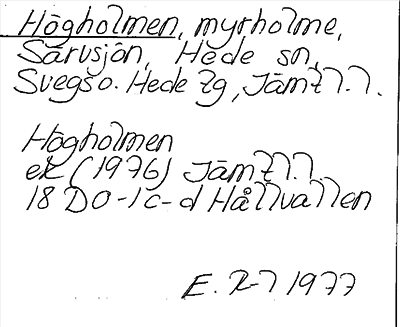 Högholmen, myrholme,
Särvsjön, Hede sn,
Svegs o. Hede tg, Jämtl.
Högholmen
ek (1976) Jämtl.
18 D 0-1 c-d Hållvallen
E. 1977